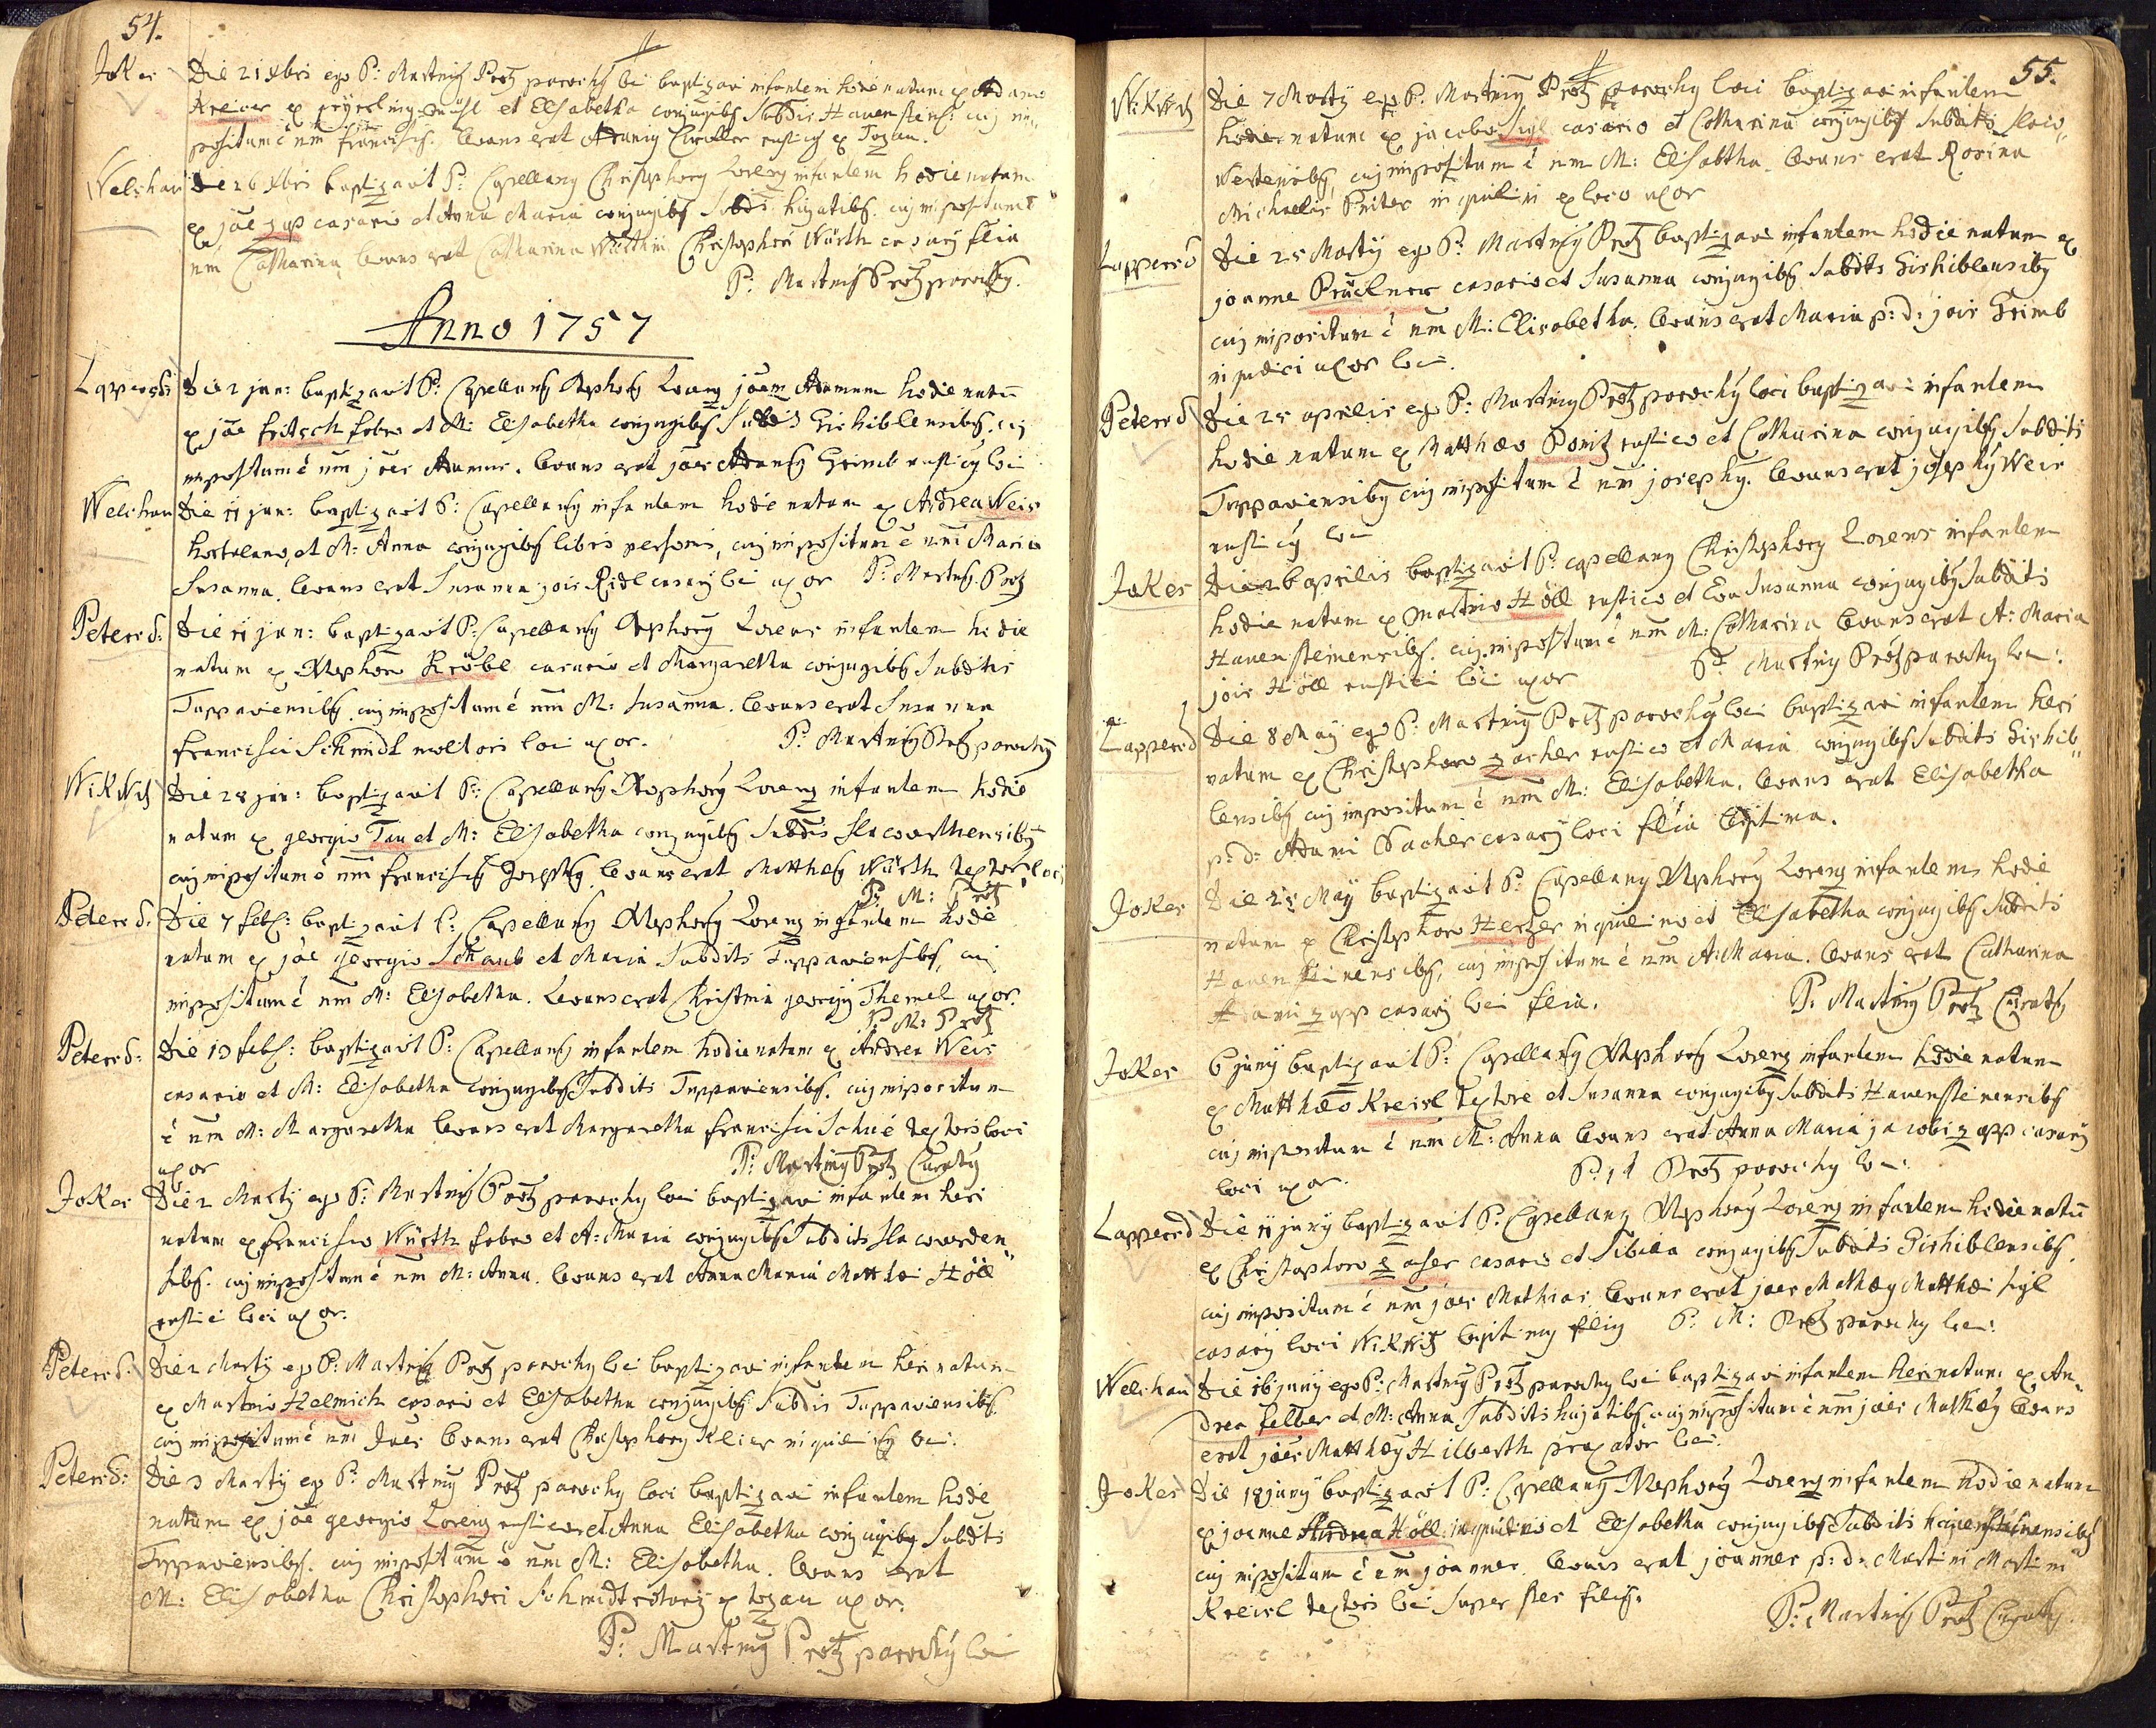 54.
Jokes Die 21 Xbris ego P: Martiny Protz parochy loci baptizavi infantem hodie natum ex Adamo
Kreier ex et Elisabetha conjugibs Subdis Hauensteins: cuj im
positum ē nm Francisch: levans erat Adamy rusticy ex Tozau.
Welchau Die 26 Xbris baptizavit P: Capellany Christophory Lorenz infantem hodie natam
ex jōe zap casario et Anna Maria conjugibs Subdis hujatibs. cuj impositum ē
nm Catharina levans erat Catharina Würthin Christophori Würth casarij filia
P: Martiny Protz parochy.
Anno 1757
Lappersd: Die 2 jan: baptizavit P: Capellany Xtophory Lorenz jōem Adamum hodie natū
ex jōe Fritsch fabro et M: Elisabetha conjugibs Subdis Gishiblensibs. cuj
impositum ē nm jōes Adamus. levans erat jōes Adamy Grimb rusticy loci
Welchau Die 11 jan: baptizavit P: Capellany infantem hodie natam ex Andrea Weis
hortulano, et M: Anna conjugibs libris personis, cuj impositum ē nm Maria
Susanna. levans erat Susanna jois Riedl casarij loci uxor P: Martiny Protz
Petersd: Die 11 jan: baptizavit P: Capellany Xtophory Lorens infantem hodie
natum ex Xtophoro Kröbl casario et Margaretha conjugibs Subditis
Tuppaviensibs. cuj impositum ē nm M: Susanna. levans erat Susanna
Francisci Schmidt molitoris loci uxor. P: Martiny Protz parochy
Wikwitz Die 28 jan: baptizavit P: Capellany Xtophory Lorenz infantem hodie
natum ex georgio Tau et M: Elisabetha conjugibs Subdis slacowerthensibs
cuj impositum ē nm Francisch Josephy levans erat Matthes Würth textor loci
P: M: Protz
Petersd: Die 7 feb: baptizavit P: Capellany Xtophory Lorenz infantem hodie
natam ex jōe georgio Schaub et Maria Subdits Tuppaviensibs, cuj
impositum ē nm M: Elisabetha. Levans erat Christina georgij Themel uxor.
P: M: Protz
Petersd: Die 13 feb: baptizavit P: Capellany infantem hodie natam ex Andrea Weis
casario et M: Elisabetha conjugibs Subdits Tuppaviensibs. cuj impositum
ē nm M: Margaretha levans erat Margaretha Francisci textoris loci
uxor P: Martiny Protz Curaty
Jokes Die 2 Martij ego P: Martiny Protz parochy loci baptizavi infantem heri
natum ex Francisco Würth fabro et A: Maria conjugibs Subdits slacowerden
sibs. cuj impositum ē nm M: Anna. levans erat Anna Maria Matthæi Höll
rustici loci uxor.
Petersd: Die 2 Martij ego P: Martiny Protz parochy loci baptizavi infantem heri natum
ex Martino Helmich casario et Elisabetha conjugibs Subdis Tuppaviensibs
cuj impositum ē nm Joes levans erat Christophory Kleier inquilins loci.
Petersd: Die 3 Martij ego P: Martiny Protz parochy loci baptizavi infantem hodie
natum ex jōe georgio Lorenz rustico et Anna Elisabetha conjugibs Subdits
Tuppaviensibs. cuj impositum ē nm M: Elisabetha. levans erat
M: Elisabetha Christophori Schmidt ex tozau uxor.
P: Martiny Protz parochy loci
55.
Wikwitz Die 7 Martij ego P: Martiny Protz parochy loci baptizavi infantem
hodie natum ex jacobo Sigl casario et Catharina conjugibs Subdits slaco
werdensibs, cuj impositum ē nm M: Elisabtha. levans erat Rosina
Michaelis inquilini ex loco uxor
Lappersd Die 25 Martij ego P: Martiny Protz baptizavi infantem hodie natam ex
joanne Prückner casario et Susanna conjugibs Subdits Gishiblensibs
cuj impositum ē nm M: Elisabetha. levans erat Maria p: d: jois Grimb
judici uxor loci.
Petersd Die 25 aprilis ego P: Martiny Protz parochy loci baptizavi infantem
hodie natum ex Matthæo Ponitz rustico et Catharina conjugibs Subditis
Tuppaviensibs cuj impositum ē nm josephy. levans erat josephy Weis
rusticy loci
Jokes Die 26 aprilis baptizavit P: capellany Christophory Lorens infantem
hodie natum ex Martino Höll rustico et Eva Susanna conjugibs Subditis
Hauensteinensibs. cuj impositum ē nm M: Catharina levans erat A: Maria
jois Höll rustici loci uxor P: Martiny Protz parochy loci.
Lappersd Die 8 Maij ego P: Martiny Protz parochy loci baptizavi infantem heri
natum ex Christophoro zacher rustico et Maria conjugibs Subdits Gishib
lensibs cuj impositum ē nm M: Elisabetha. levans erat Elisabetha
p: d: Adami Bacher casarij loci filia legitima.
Jokes Die 25 Maij baptizavit P: Capellany Xtophory Lorenz infantem hodie
natum ex Christophoro Herzer inquilino et Elisabetha conjugibs Subdits
Hauensteinensibs, cuj impositum ē nm A: Maria. levans erat Catharina
Adami zapp casarij loci filia. P: Martiny Protz Curaty
Jokes 6 junij baptizavit P: Capellany Xtophory Lorenz infantem hodie natum
ex Matthæo Kreisl textore et Susanna conjugibs Subdits Hauensteinensibs
cuj impositum ē nm M: Anna levans erat Anna Maria jacobi zapp casarij
loci uxor. P: M Protz parochy loci.
Lappersd Die 11 junij baptizavit P: Capellany Xtophory Lorenz infantem hodie natū
ex Christophoro zaser casario et Sibilla conjugibs Subdits Gishiblensibs.
cuj impositum ē nm joes Mathias levans erat joes Mathæy Matthæi sigl
casarij loci Wikwitz legitimy filiy P: M: Protz parochy loci.
Welchau Die 16 junij ego P: Martiny Protz parochy loci baptizavi infantem heri natum ex An
drea felber et M: Anna Subdits hujatibs, cuj impositum ē nm joes Mathæy levans
erat joes Matthæy Hilberth loci.
Jokes Die 18 junij baptizavit P: Capellany Xtophory Lorenz infantem hodie natum
ex joanne Andrea Höll inquilino et Elisabetha conjugibs Subdits hauensteinensibs
cuj impositum ē nm joannes. levans erat joannes p: d: Martini Martini
Kreisl textoris loci superstes filiy.
P: Martiny Protz Curaty.